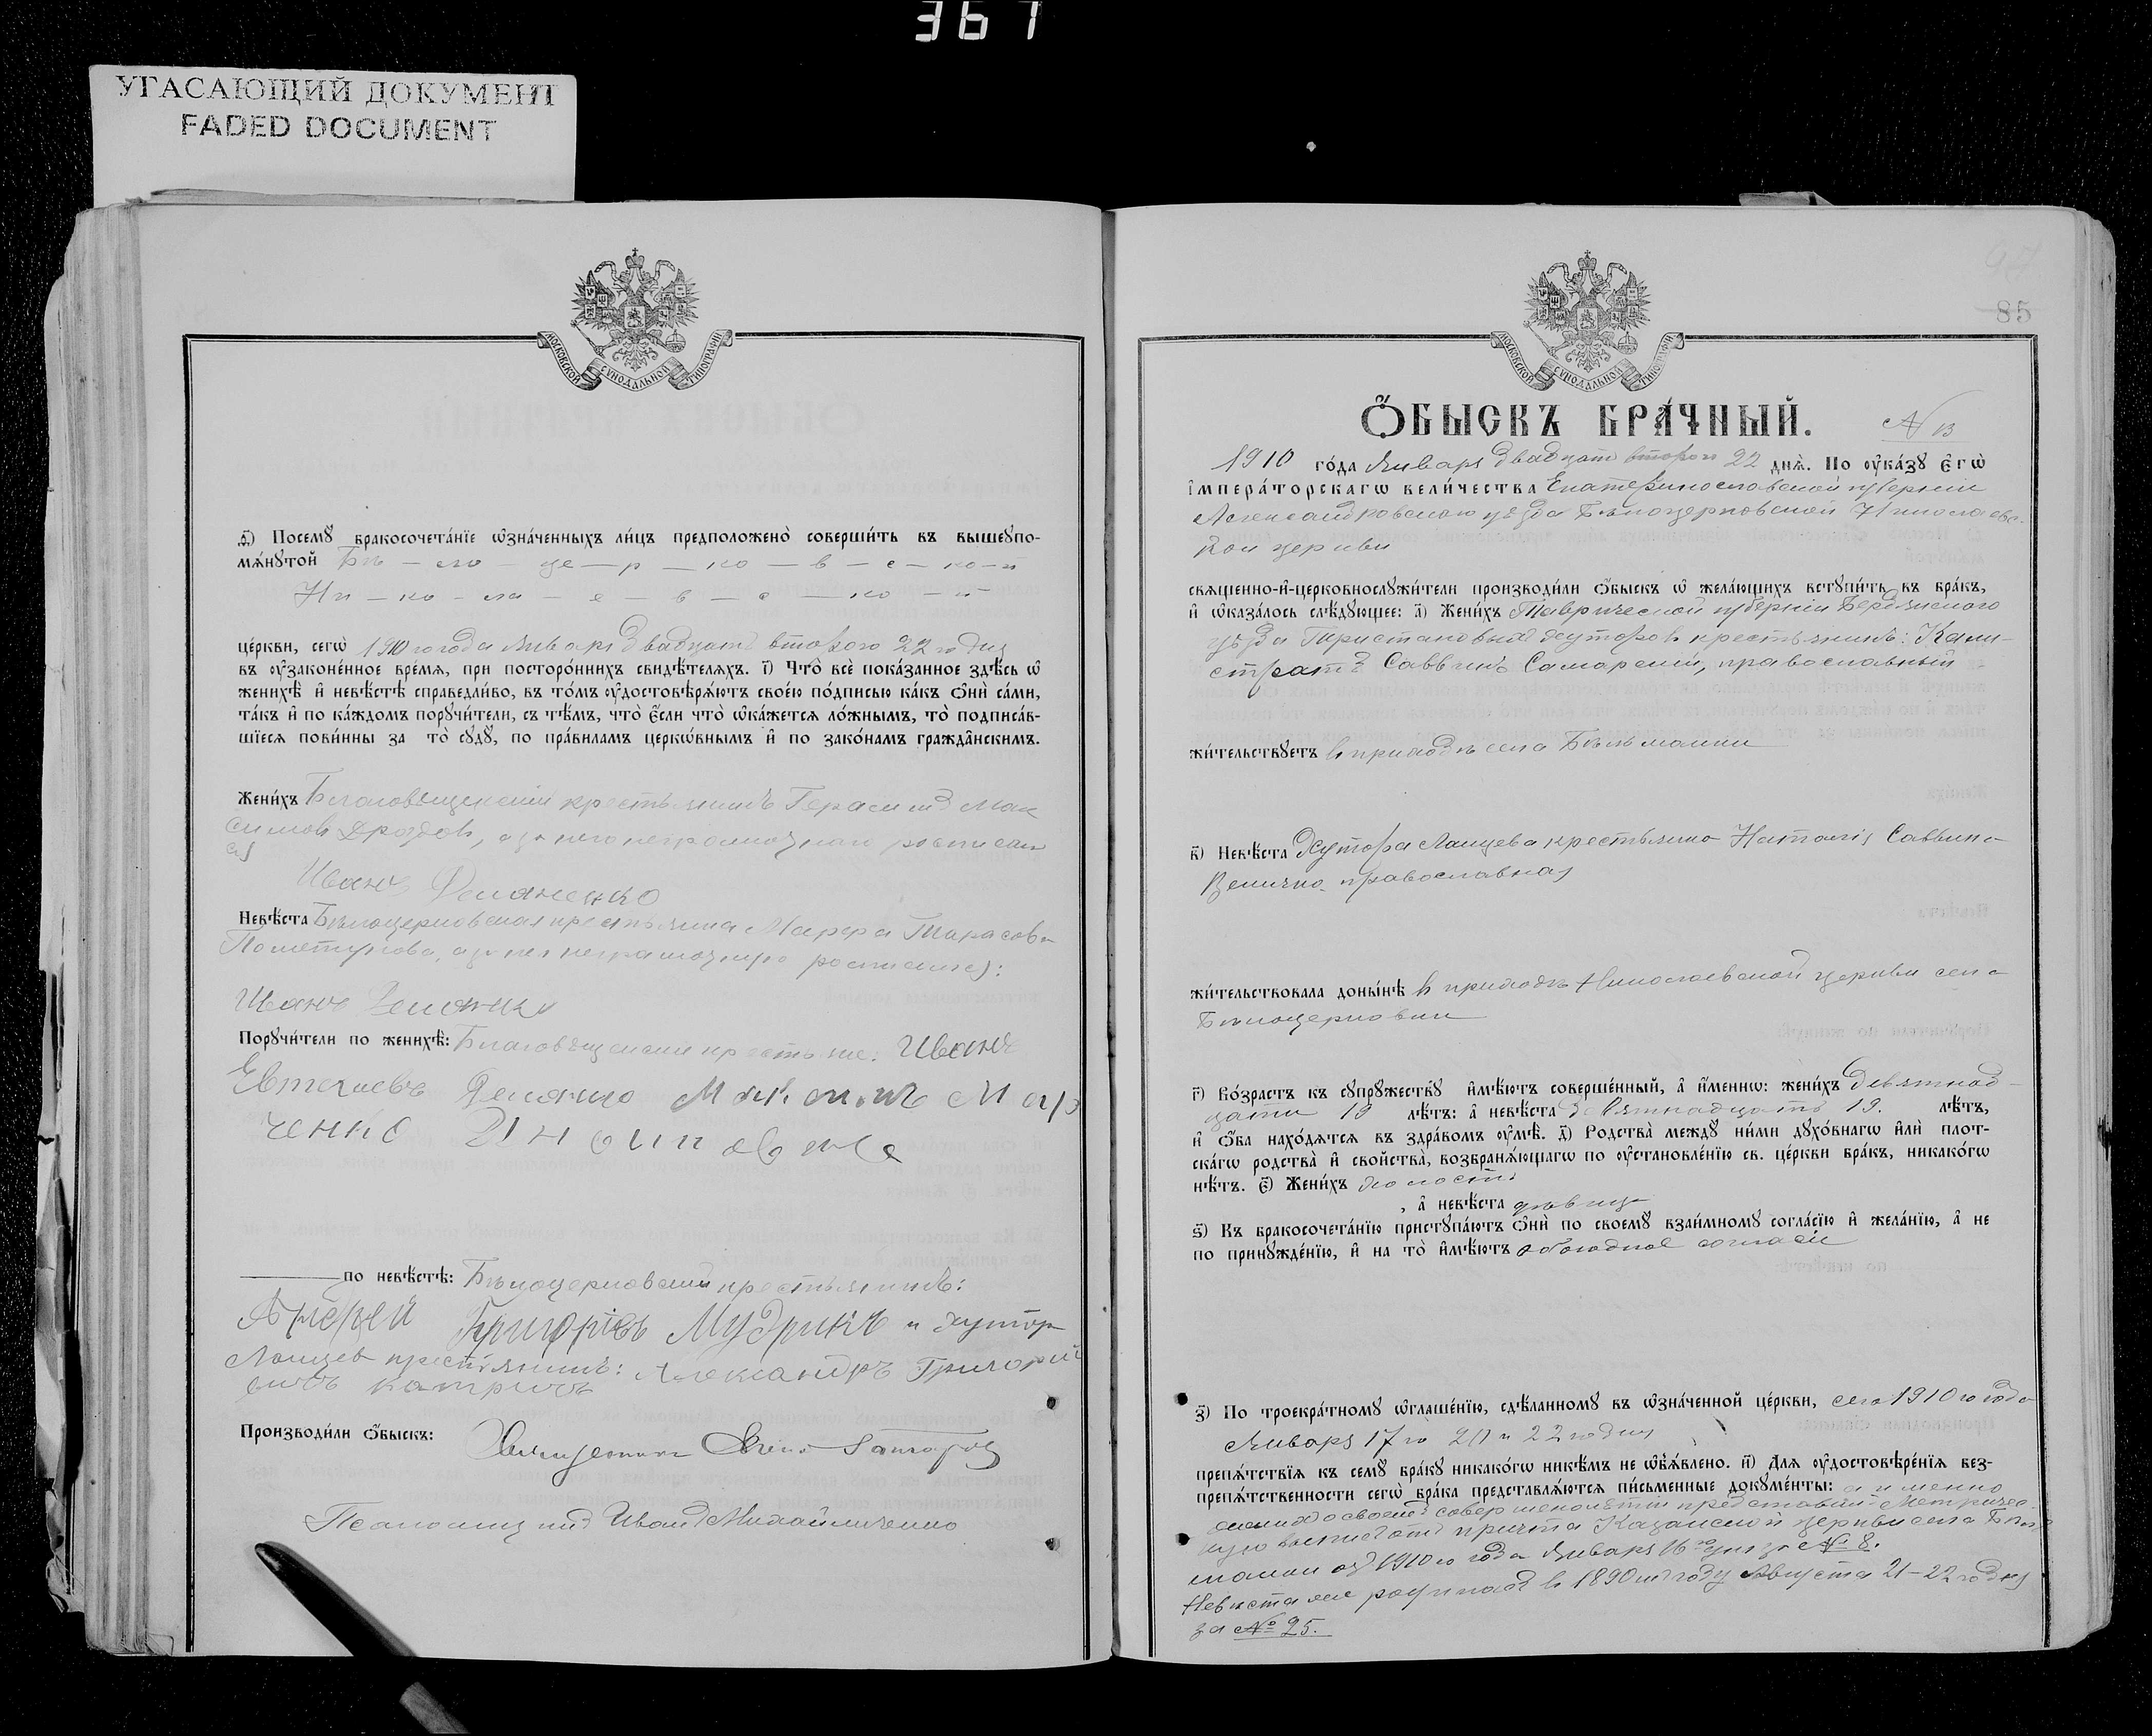 367
УГАСАЮЩИЙ ДОКУМЕНТ
FADED DOCUMENT
МОСКОВСКОЙ СѴНОДАЛЬНОЙ ТИПОГРАФІИ
ѳ҃) Посемꙋ̀ бракосочета́нїе ѡ҆зна́ченныхъ ли́цъ предположено̀ соверши́ть въ вышеꙋпо-
мѧ́нꙋтой Бѣ — ло — це — р — ко — в — с — ко — й
Ни — ко — ла — е — в — с — ко — й
це́ркви, сегѡ̀ 1910 го года Января двадцать второго 22 го дня
въ ᲂу҆законе́нное вре́мѧ, при посторо́ннихъ свидѣ́телѧхъ. і҃) Что̀ всѐ пока́занное здѣ́сь ѡ҆
женихѣ̀ и҆ невѣ́стѣ справедли́во, въ то́мъ ᲂу҆достовѣрѧ́ютъ свое́ю по́дписью ка́къ ѻ҆нѝ са́ми,
та́къ и҆ по ка́ждомъ порꙋчи́тели, съ тѣ́мъ, что̀ є҆́сли что̀ ѡ҆ка́жетсѧ ло́жнымъ, то̀ подписа́в-
шїесѧ пови́нны за то̀ сꙋдꙋ̀, по пра́виламъ церкѡ́внымъ и҆ по зако́намъ гражда̑нскимъ.
Жени́хъ Благовѣщенскій крестьянинъ Герасимъ Мак
симовъ Дроздов, а за него неграмотнаго росписал
ся
Иванъ
Невѣ́ста Бѣлоцерковская крестьянка Марфа Тарасова
а за нея неграмотную росписался:
Иванъ
Порꙋчи́тели по женихѣ̀: Благовѣщенскіе крестьяне: Иванъ
по невѣ́стѣ: Бѣлоцерковскій крестьянинъ:
Алексей Григоріевъ Мудрикъ и хутор
крестьянинъ: Александръ Григорий
Производи́ли ѻ҆́быскъ: Священникъ
Псаломщикъ Иван Михайличенко
85
МОСКОВСКОЙ СѴНОДАЛЬНОЙ ТИПОГРАФІИ
Ѻ҆́БЫСКЪ БРА́ЧНЫЙ. N 13
1910 го́да Января двадцать второго 22 днѧ̀. По ᲂу҆ка́зꙋ є҆гѡ̀
і҆мпера́торскагѡ вели́чества Екатеринославской губерніи
Александровского уѣзда Бѣлоцерковской Николаевс-
кой церкви
свѧщенно-и҆-церковнослꙋжи́тели производи́ли ѻ҆́быскъ ѡ҆ жела́ющихъ встꙋпи́ть въ бра́къ,
и҆ ѡ҆каза́лось слѣ́дꙋющее: а҃) Жени́хъ Таврической губерніи Бердянского
уѣзда хуторов крестьянинъ: Кали-
стратъ Саввинъ Самарскій, православный
жи́тельствꙋетъ в приходѣ села Бѣльманки
в҃) Невѣ́ста Хутора крестьянка Наталія Саввина
православная
жи́тельствовала доны́нѣ в приходѣ Николаевской церкви села
Бѣлоцерковки
г҃) Во́зрастъ къ сꙋпрꙋ́жествꙋ и҆мѣ́ютъ соверше́нный, а҆ и҆́меннѡ: жени́хъ девятнад-
цати 19 лѣ́тъ: а҆ невѣ́ста девятнадцать 19. лѣ́тъ,
и҆ ѻ҆́ба нахо́дѧтсѧ въ здра́вомъ ᲂу҆мѣ̀. д҃) Родства̀ междꙋ̀ ни́ми дꙋхо́внагѡ и҆лѝ плот-
ска́гѡ родства̀ и҆ свойства̀, возбранѧ́ющагѡ по ᲂу҆становле́нїю св. це́ркви бра́къ, никако́гѡ
нѣ́тъ. є҃) Жени́хъ холостъ
, а҆ невѣ́ста дѣвица
ѕ҃) Къ бракосочета́нїю пристꙋпа́ютъ ѻ҆нѝ по своемꙋ̀ взаи́мномꙋ согла́сїю и҆ жела́нїю, а҆ не
по принꙋжде́нїю, и҆ на то̀ и҆мѣ́ютъ обоюдное согласіе
з҃) По троекра́тномꙋ ѡ҆глаше́нїю, сдѣ́ланномꙋ въ ѡ҆зна́ченной це́ркви, сего 1910 го года
Января 17 го 20 и 22 го дня
препѧ́тствїѧ къ семꙋ̀ бра́кꙋ никако́гѡ никѣ́мъ не ѡ҆б̾ѧ́влено. и҃) Длѧ ᲂу҆достовѣре́нїѧ без-
препѧ́тственности сегѡ̀ бра́ка представлѧ́ютсѧ пи́сьменные докꙋме́нты: а именно
женихъ о своемъ совершеннолѣтіи представилъ Метричес-
кую выпись отъ причта Казанской церкви села Бѣль-
манки отъ 1910 го года Января 16 го дня за № 8.
Невѣста же родилась в 1890 мъ году Августа 21-22 го дня
за № 25.